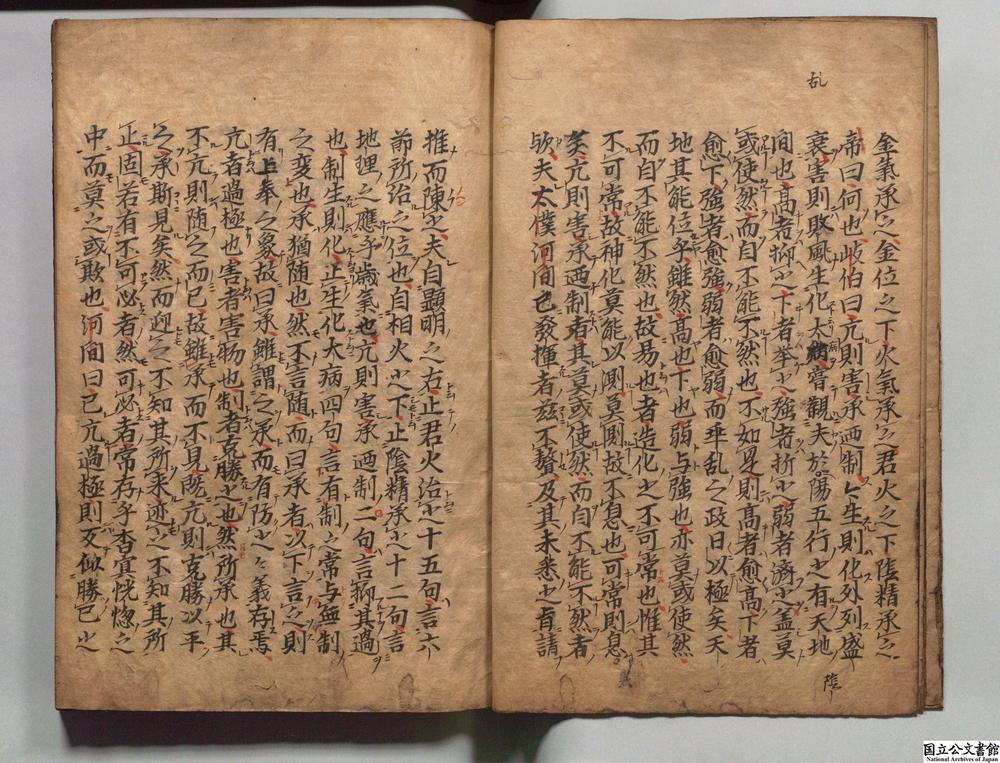 乱
金氣承之金位之下火氣承之君火之下陰精承之
帝曰何也岐伯曰亢則害承迺制〻生則化外列盛
衰害則敗乱生化大病甞觀夫於陽五行之有天地
間也髙者抑之下者举之強者折之弱者済之盖莫
或使然而自不能不然也不如是則髙者愈髙下者
愈下強者愈強弱者愈弱而乖乱之政日以極矣天
地其能位乎雖然髙也下也弱与強也亦莫或使然
而自不能不然也故易也者造化之不可常也惟其
不可常故神化莫能以測莫測故不息也可常則息
矣亢則害承迺制者其莫或使然而自不能不然者
欤夫太僕河間已發揮者玆不贅及其未悉之旨請
陰
推而陳之夫自顯明之右止君火治之十五句言六
節所治之位也自相火之下止陰精承之十二句言
地理之應乎歳氣也亢則害承迺制二句言抑其過
也制生則化止生化大病四句言有制之常与無制
之変也承猶随也然不言随而曰承者以下言之則
有上奉之象故曰承雖謂之承而有防之〻義存焉
亢者過極也害者害物也制者克勝之也然所承也其
不亢則随之而已故雖承而不見既亢則克勝以平
之承斯見矣然而迎之不知其所来迹之不知其所
止固若有不可必者然可必者常存乎杳冥恍惚之
中而莫之或欺也河間曰已亢過極則反似勝已之
国立公文書館
National Archives of Japan